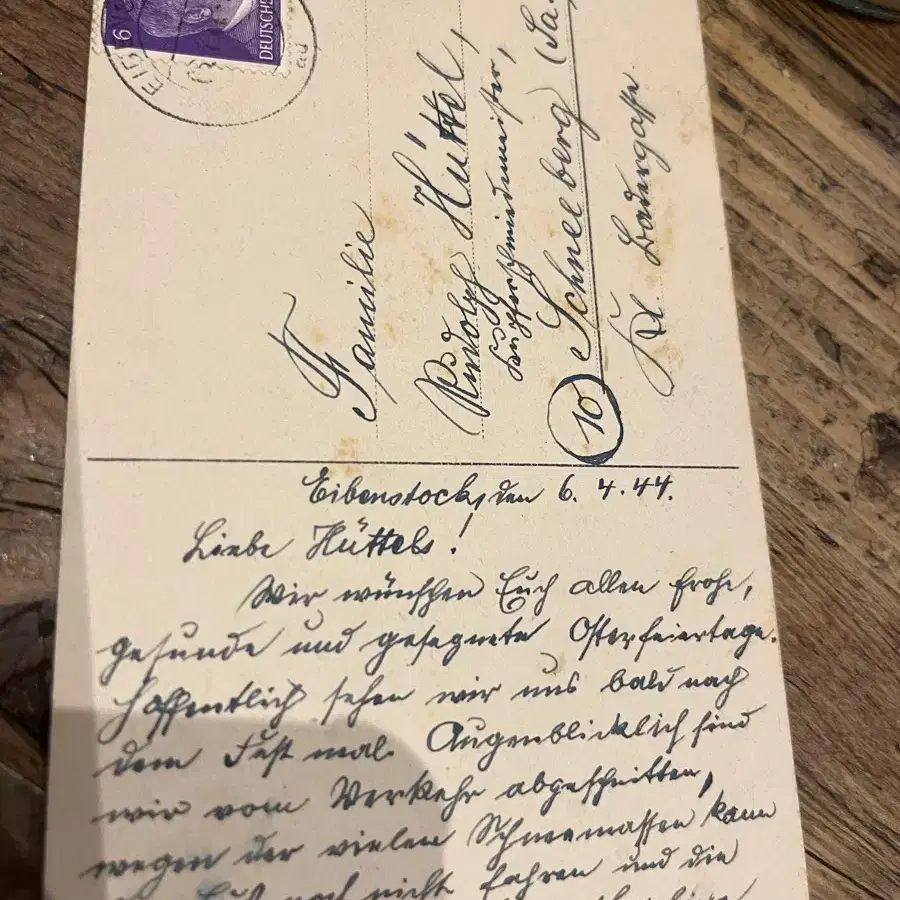 6
DEUTSCHES
EIBENST
Familie
Rudolf Hüttel,
Kupferschmiedemeister,
10 Schneeberg (Sa.
Kl. Badergasse
Eibenstock, den 6. 4. 44.
Liebe Hüttels!
Wir wünschen Euch allen frohe,
gesunde und gesegnete Osterfeiertage.
Hoffentlich sehen wir uns bald nach
dem Fest mal. Augenblicklich sind
wir vom Verkehr abgeschnitten,
wegen der vielen Schneemassen kann
noch nicht fahren und die